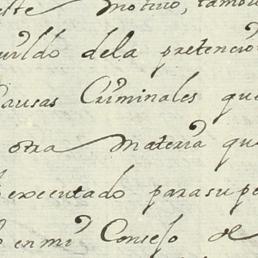 este Motivo, tamb
dela pretencio
Causas Criminales que
otra Materia qu
executado parasupe
en mi Consejo de